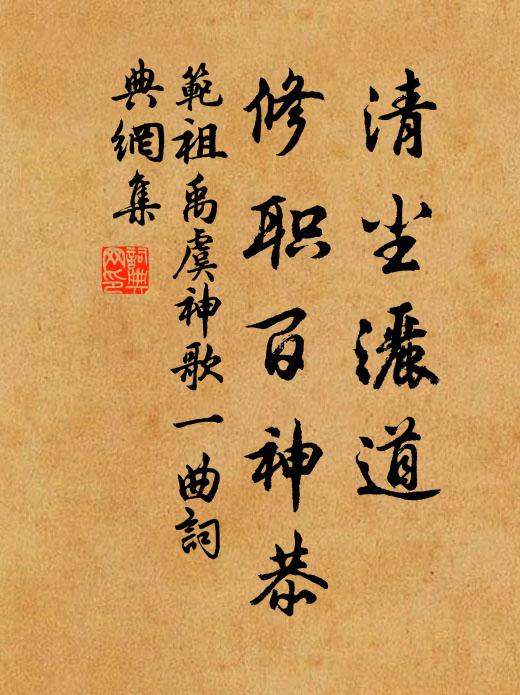 清尘灑道
修职百神恭
範祖禹虞神歌一曲詞
典網集
詞典網印